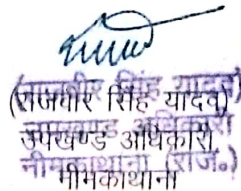 (राजवीर सिंह यादव)
उपखण्ड अधिकारी
नीमकाथाना (राज०)
नीमकाथाना